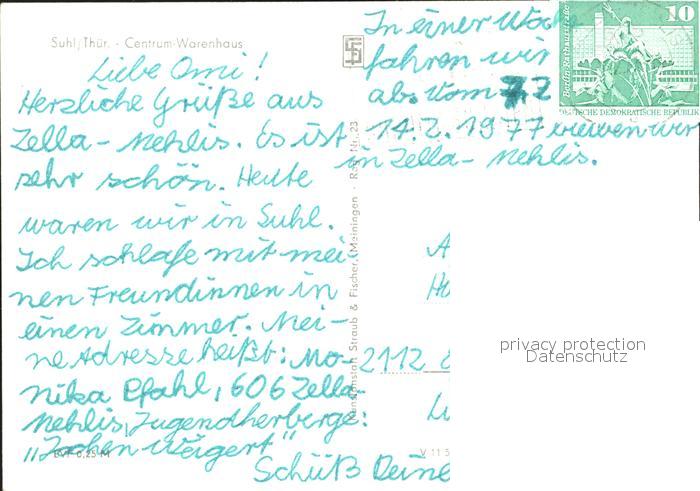 Suhl/Thür. - Centrum-Warenhaus
Liebe Omi!
Herzliche Grüße aus
Zella-Mehlis. Es ist
sehr schön. Heute
waren wir in Suhl.
Ich schlafe mit mei-
nen Freundinnen in
einen Zimmer. Mei-
ne Adresse heißt: Mo-
nika Pfahl, 606 Zella-
Mehlis, Jugendherberge:
"Jochen Weigert"
Schüß Deine
In einer Woche
fahren wir
ab. Vom 7.2
14.2.1977 bleiben wir
in Zella-Mehlis.
10
Berlin Rathausstraße
DEUTSCHE DEMOKRATISCHE REPUBLIK
Straub & Fischer, Meiningen
2112
V 11 5
EVP 0,25 M
privacy protection
Datenschutz